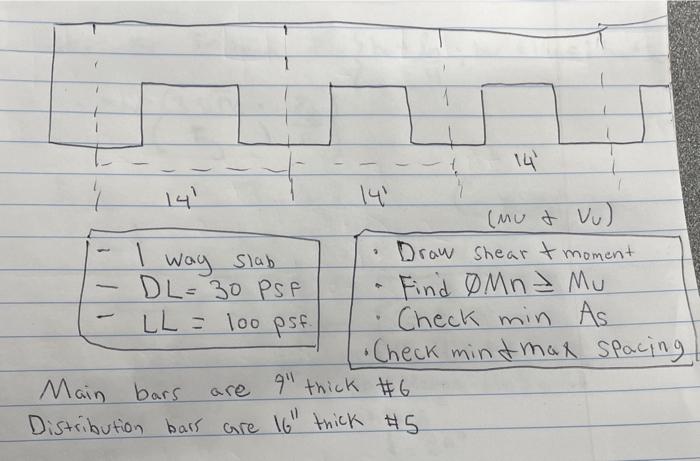 14'
14' 14'
(Mu + Vu)
- 1 way slab
- DL = 30 PSF
- LL = 100 psf.
• Draw shear + moment
• Find ØMn ≥ Mu
• Check min As
• Check min + max spacing
Main bars are 9" thick #6
Distribution bars are 16" thick #5